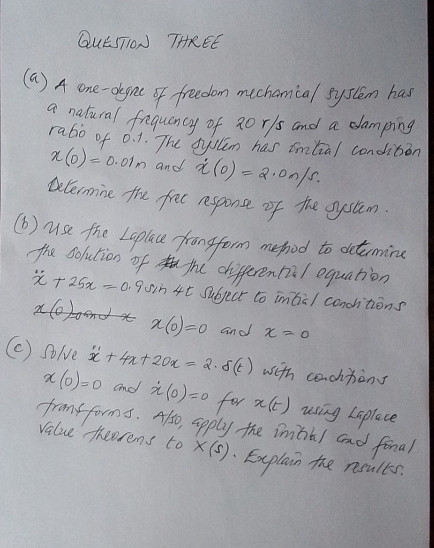 QUESTION THREE
(a) A one-degree of freedom mechanical system has
a natural frequency of 20 r/s and a damping
ratio of 0.1. The system has initial condition
x(0) = 0.01m and ẋ(0) = 2.0m/s.
Determine the free response of the system.
(b) Use the Laplace transform method to determine
the solution of the differential equation
ẍ + 25x = 0.9 sin 4t subject to initial conditions
x(0)=0 and x = 0
(c) Solve ẍ + 4x + 20x = 2.δ(t) with conditions
x(0)=0 and ẋ(0)=0 for x(t) using Laplace
transforms. Also, apply the initial and final
value theorems to X(s). Explain the results.